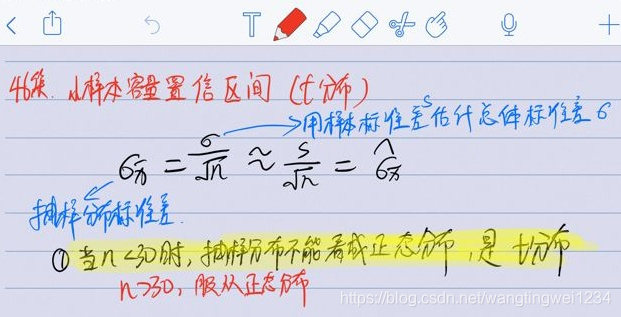 46集. 小样本容量置信区间 (t分布)
用样本标准差S估计总体标准差σ
σx̄ = σ/√n ≈ S/√n = σ̂x̄
抽样分布标准差.
① 当n<30时, 抽样分布不能看成正态分布, 是 t分布
n>30, 服从正态分布
https://blog.csdn.net/wangtingwei1234